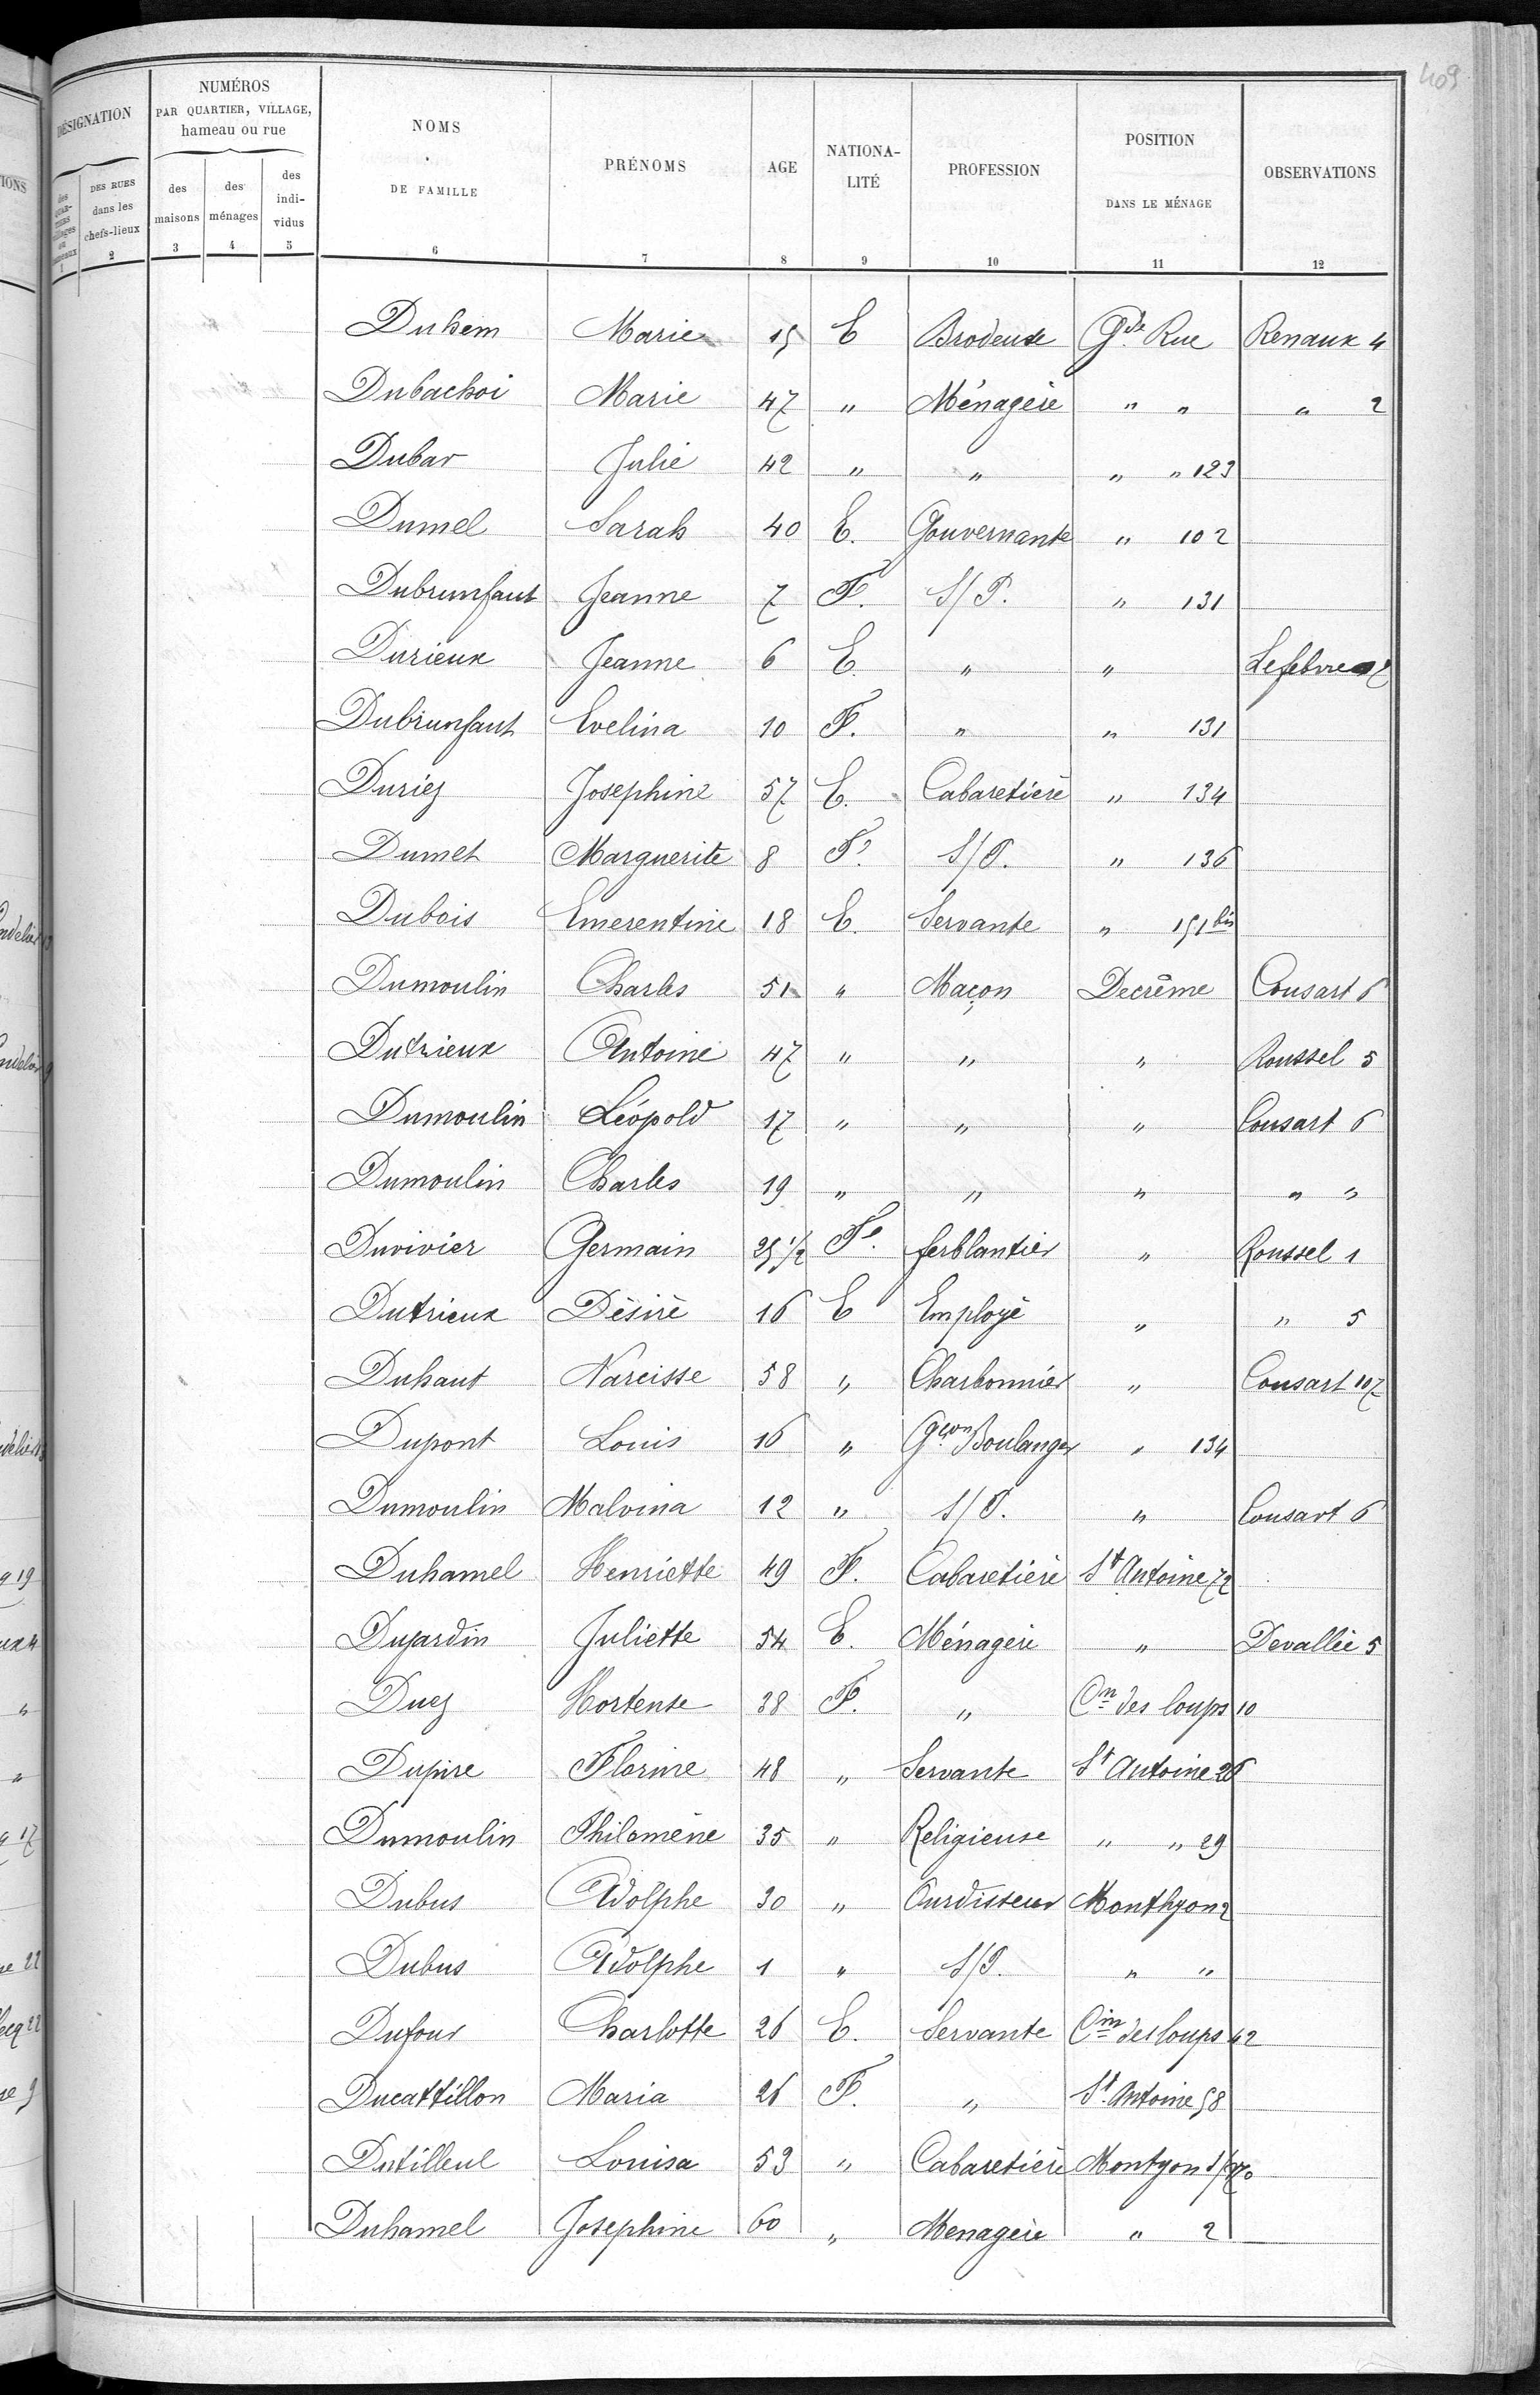 409
DÉSIGNATION
NUMÉROS
PAR QUARTIER, VILLAGE,
hameau ou rue
DES RUES
dans les
chefs-lieux
2
des
maisons
3
des
ménages
4
des
indi-
vidus
5
NOMS
DE FAMILLE
6
PRÉNOMS
7
AGE
8
NATIONA-
LITÉ
9
PROFESSION
10
POSITION
DANS LE MÉNAGE
11
OBSERVATIONS
12
Duhem Marie 15 E Brodeuse Gde Rue Renaux 4
Dubachoi Marie 47 " Ménagère " " " 2
Dubar Julie 42 " " " " 123
Dumel Sarah 40 E. Gouvernante " 102
Dubrunfaut Jeanne 7 F. S/P. " 131
Durieux Jeanne 6 E. " " Lefebvre
Dubrunfaut Evelina 10 F. " " 131
Duriez Josephine 57 E. Cabaretière " 134
Dumet Marguerite 8 F. S/P. " 136
Dubois Emerentine 18 E. Servante " 151 bis
Dumoulin Charles 51 " Maçon Decrême Cousart 6
Dutrieux Antoine 47 " " " Roussel 5
Dumoulin Léopold 17 " " " Cousart 6
Dumoulin Charles 19 " " " " "
Duvivier Germain 25 1/2 F. ferblantier " Roussel 1
Dutrieux Désiré 16 E Employé " " 5
Duhaut Narcisse 58 " Charbonnier " Cousart 107
Dupont Louis 16 " Gçon Boulanger " 134
Dumoulin Malvina 12 " S/P. " Cousart 6
Duhamel Henriette 49 F. Cabaretière St Antoine 72
Dujardin Juliette 54 E. Ménagère " Devallée 5
Duez Hortense 38 F. " Cin des loups 10
Dupire Florine 48 " Servante St Antoine 26
Dumoulin Philomène 35 " Religieuse " " 29
Dubus Adolphe 30 " Ourdisseur Monthyon 2
Dubus Adolphe 1 " S/P. " "
Dufour Charlotte 26 E. Servante Cin des loups 42
Ducattillon Maria 26 F. " St Antoine 58
Dutilleul Louisa 53 " Cabaretière Montyon
Duhamel Josephine 60 " Menagère " 2